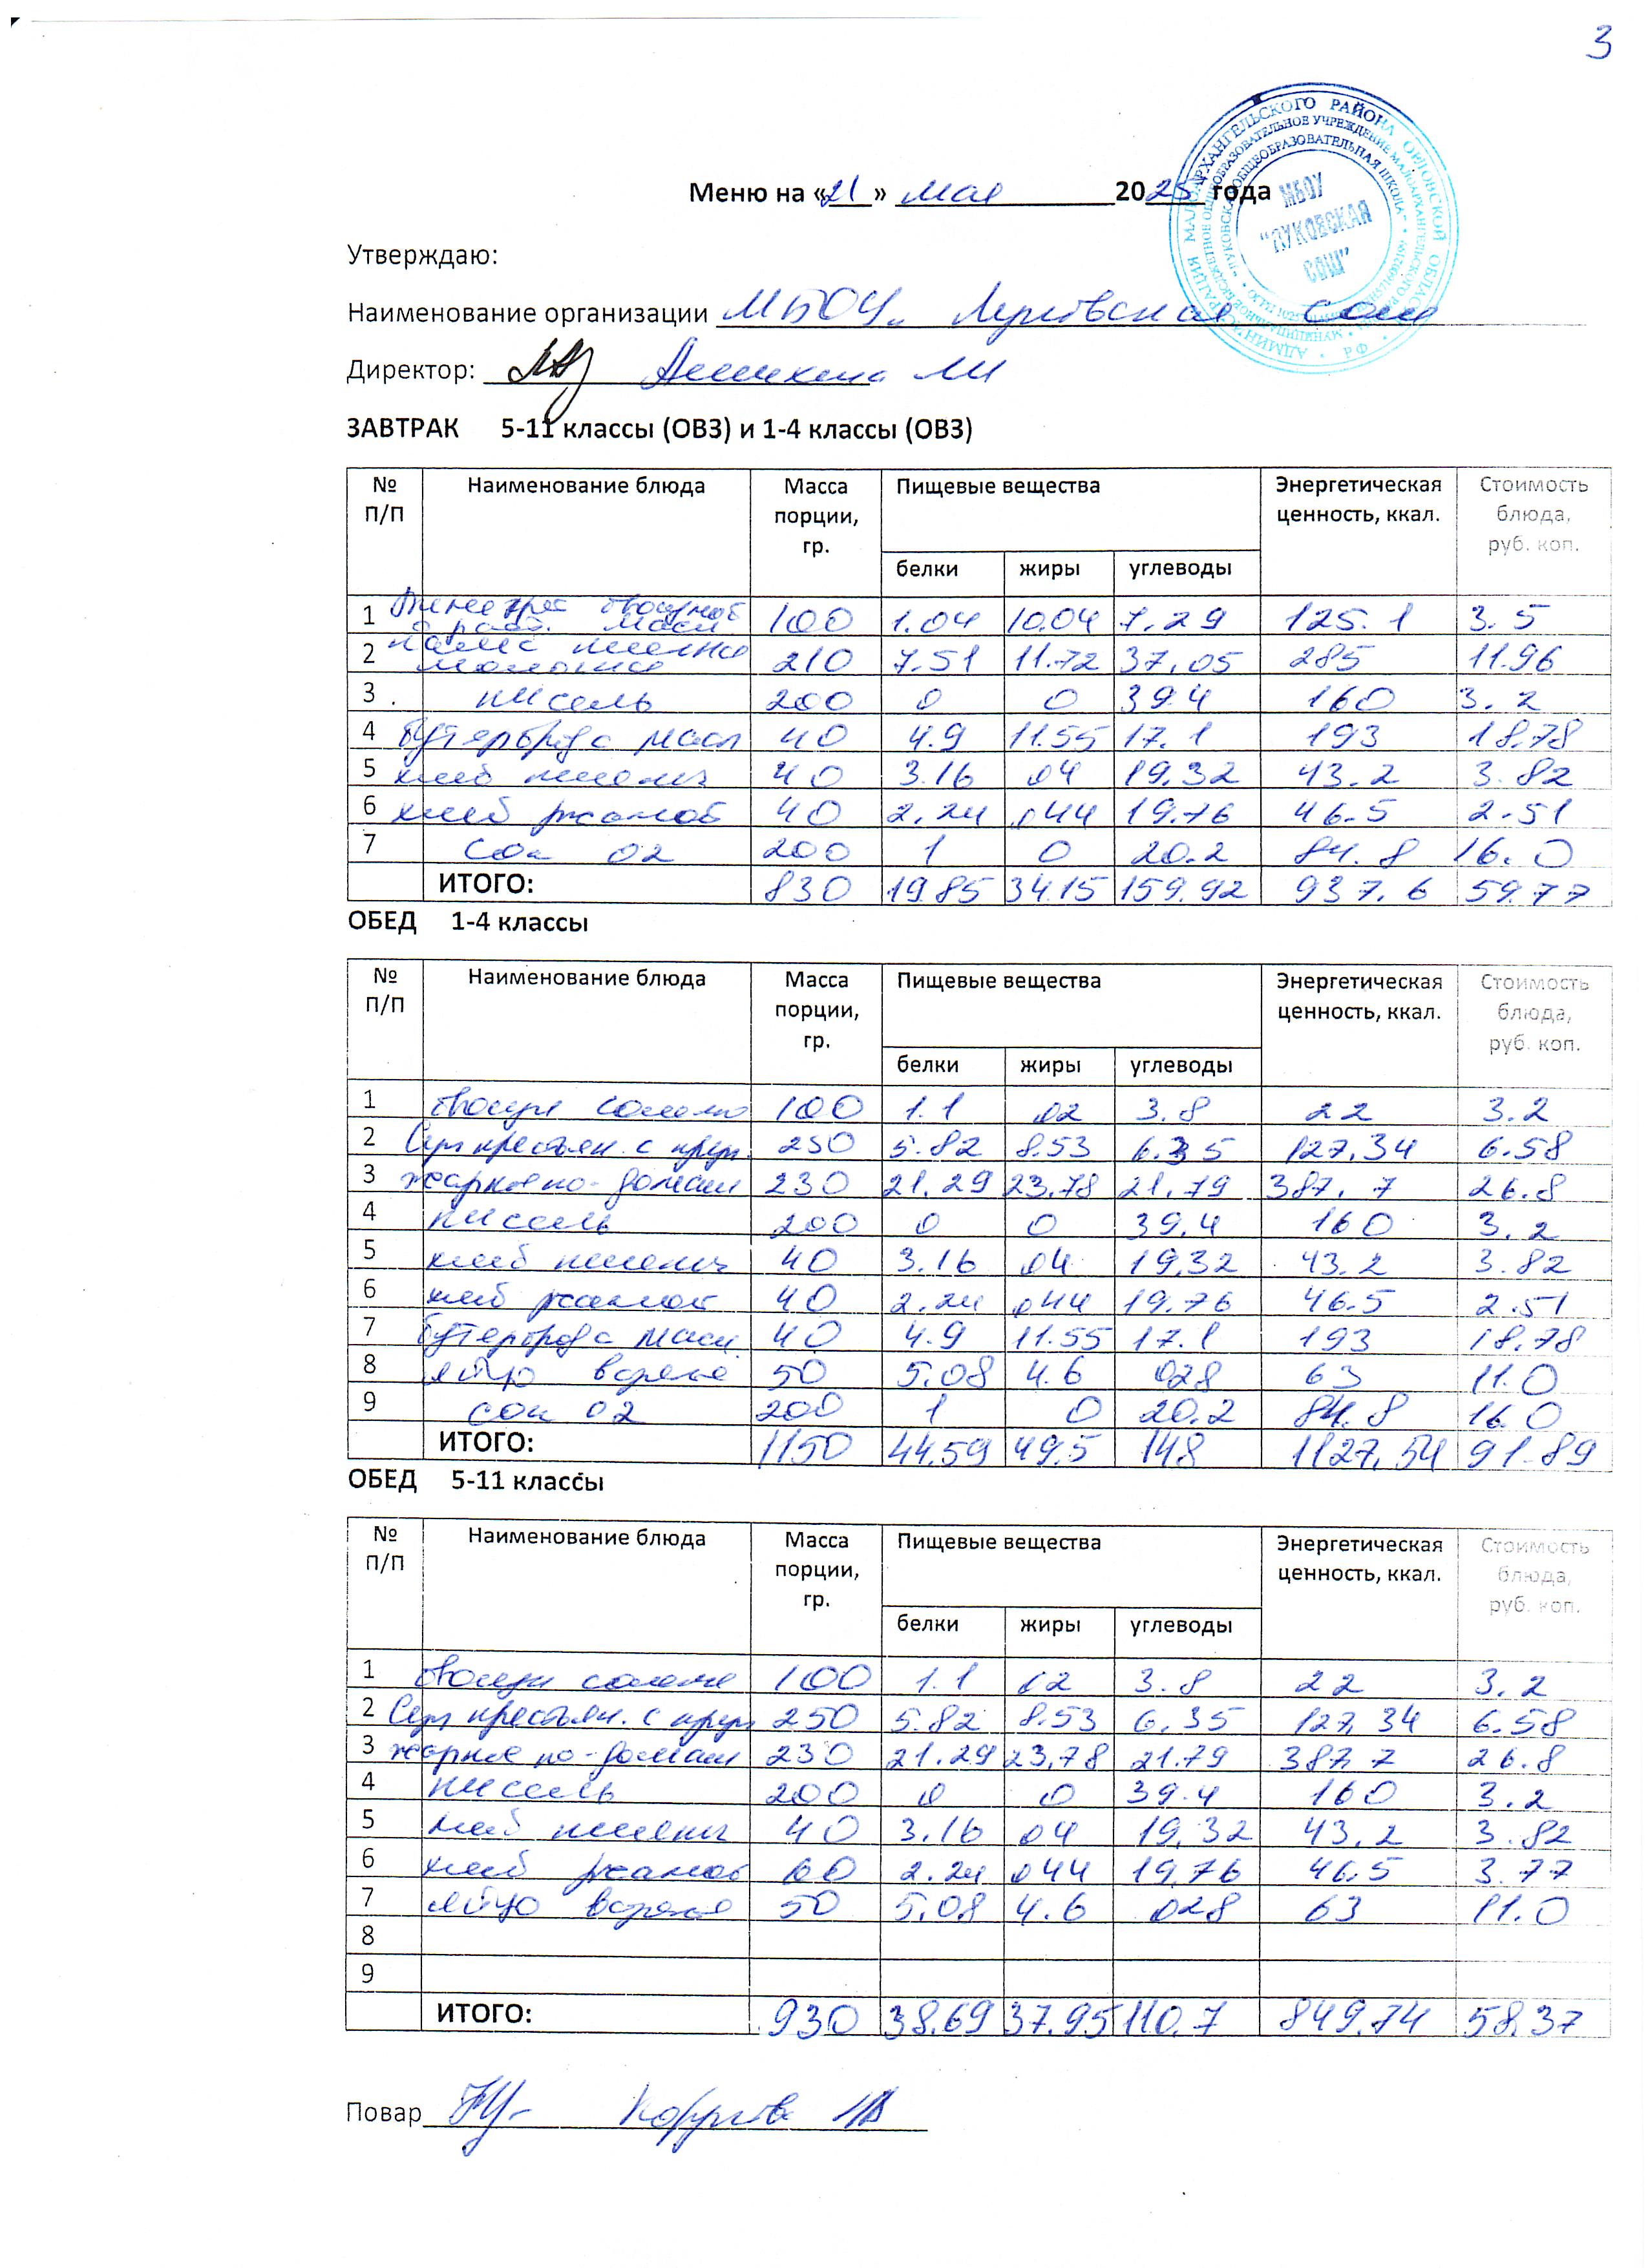 3
Меню на «21» мая 2025 года
Утверждаю:
Наименование организации МБОУ „ Луковская сош
Директор: Анишкина ЛИ
ЗАВТРАК 5-11 классы (ОВЗ) и 1-4 классы (ОВЗ)
№ П/П Наименование блюда Масса порции, гр. Пищевые вещества Энергетическая ценность, ккал. Стоимость блюда, руб. коп.
белки жиры углеводы
1 Винегрет овощной с раст. масл. 100 1.04 10.04 7.29 125.1 3.5
2 каша пшенная молочная 210 7.51 11.72 37.05 285 11.96
3 кисель 200 0 0 39.4 160 3.2
4 бутерброд с масл 40 4.9 11.55 17.1 193 18.78
5 хлеб пшенич 40 3.16 04 19.32 43.2 3.82
6 хлеб ржаной 40 2.24 044 19.76 46.5 2.51
7 сок 02 200 1 0 20.2 84.8 16.0
ИТОГО: 830 19.85 34.15 159.92 937.6 59.77
ОБЕД 1-4 классы
№ П/П Наименование блюда Масса порции, гр. Пищевые вещества Энергетическая ценность, ккал. Стоимость блюда, руб. коп.
белки жиры углеводы
1 овощи солены 100 1.1 02 3.8 22 3.2
2 Суп крестьян. с круп. 250 5.82 8.53 6.35 127.34 6.58
3 жаркое по-домаш 230 21.29 23.78 21.79 387.7 26.8
4 кисель 200 0 0 39.4 160 3.2
5 хлеб пшенич 40 3.16 04 19.32 43.2 3.82
6 хлеб ржаной 40 2.24 044 19.76 46.5 2.51
7 бутерброд с масл. 40 4.9 11.55 17.1 193 18.78
8 яйцо варено 50 5.08 4.6 028 63 11.0
9 сок 02 200 1 0 20.2 84.8 16.0
ИТОГО: 1150 44.59 49.5 148 1127.54 91.89
ОБЕД 5-11 классы
№ П/П Наименование блюда Масса порции, гр. Пищевые вещества Энергетическая ценность, ккал. Стоимость блюда, руб. коп.
белки жиры углеводы
1 овощи солены 100 1.1 02 3.8 22 3.2
2 Суп крестьян. с круп 250 5.82 8.53 6.35 127.34 6.58
3 жаркое по-домаш 230 21.29 23.78 21.79 387.7 26.8
4 кисель 200 0 0 39.4 160 3.2
5 хлеб пшенич 40 3.16 04 19.32 43.2 3.82
6 хлеб ржаной 60 2.24 044 19.76 46.5 3.77
7 яйцо варено 50 5.08 4.6 028 63 11.0
8
9
ИТОГО: 930 38.69 37.95 110.7 849.74 58.37
Повар
МБОУ
"ЛУКОВСКАЯ
СОШ"